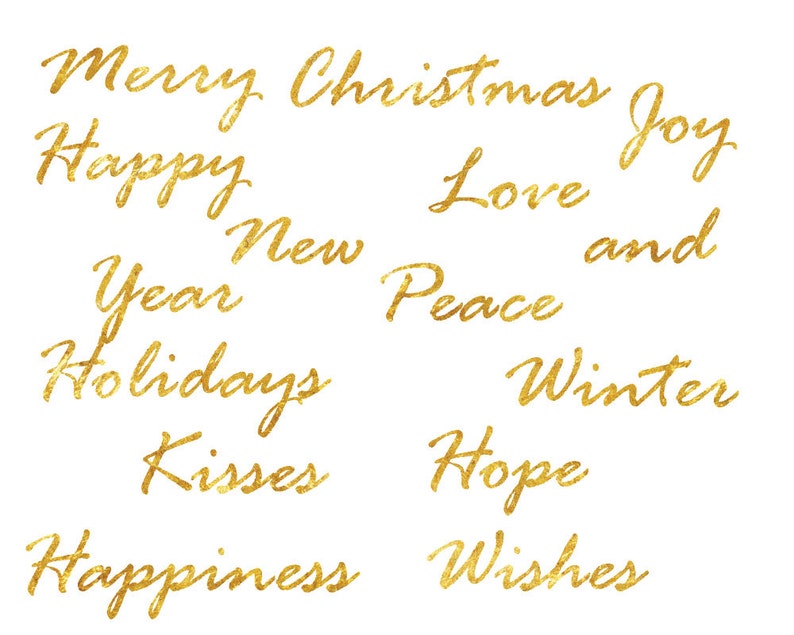 Merry Christmas Joy
Happy Love
New and
Year Peace
Holidays Winter
Kisses Hope
Happiness Wishes